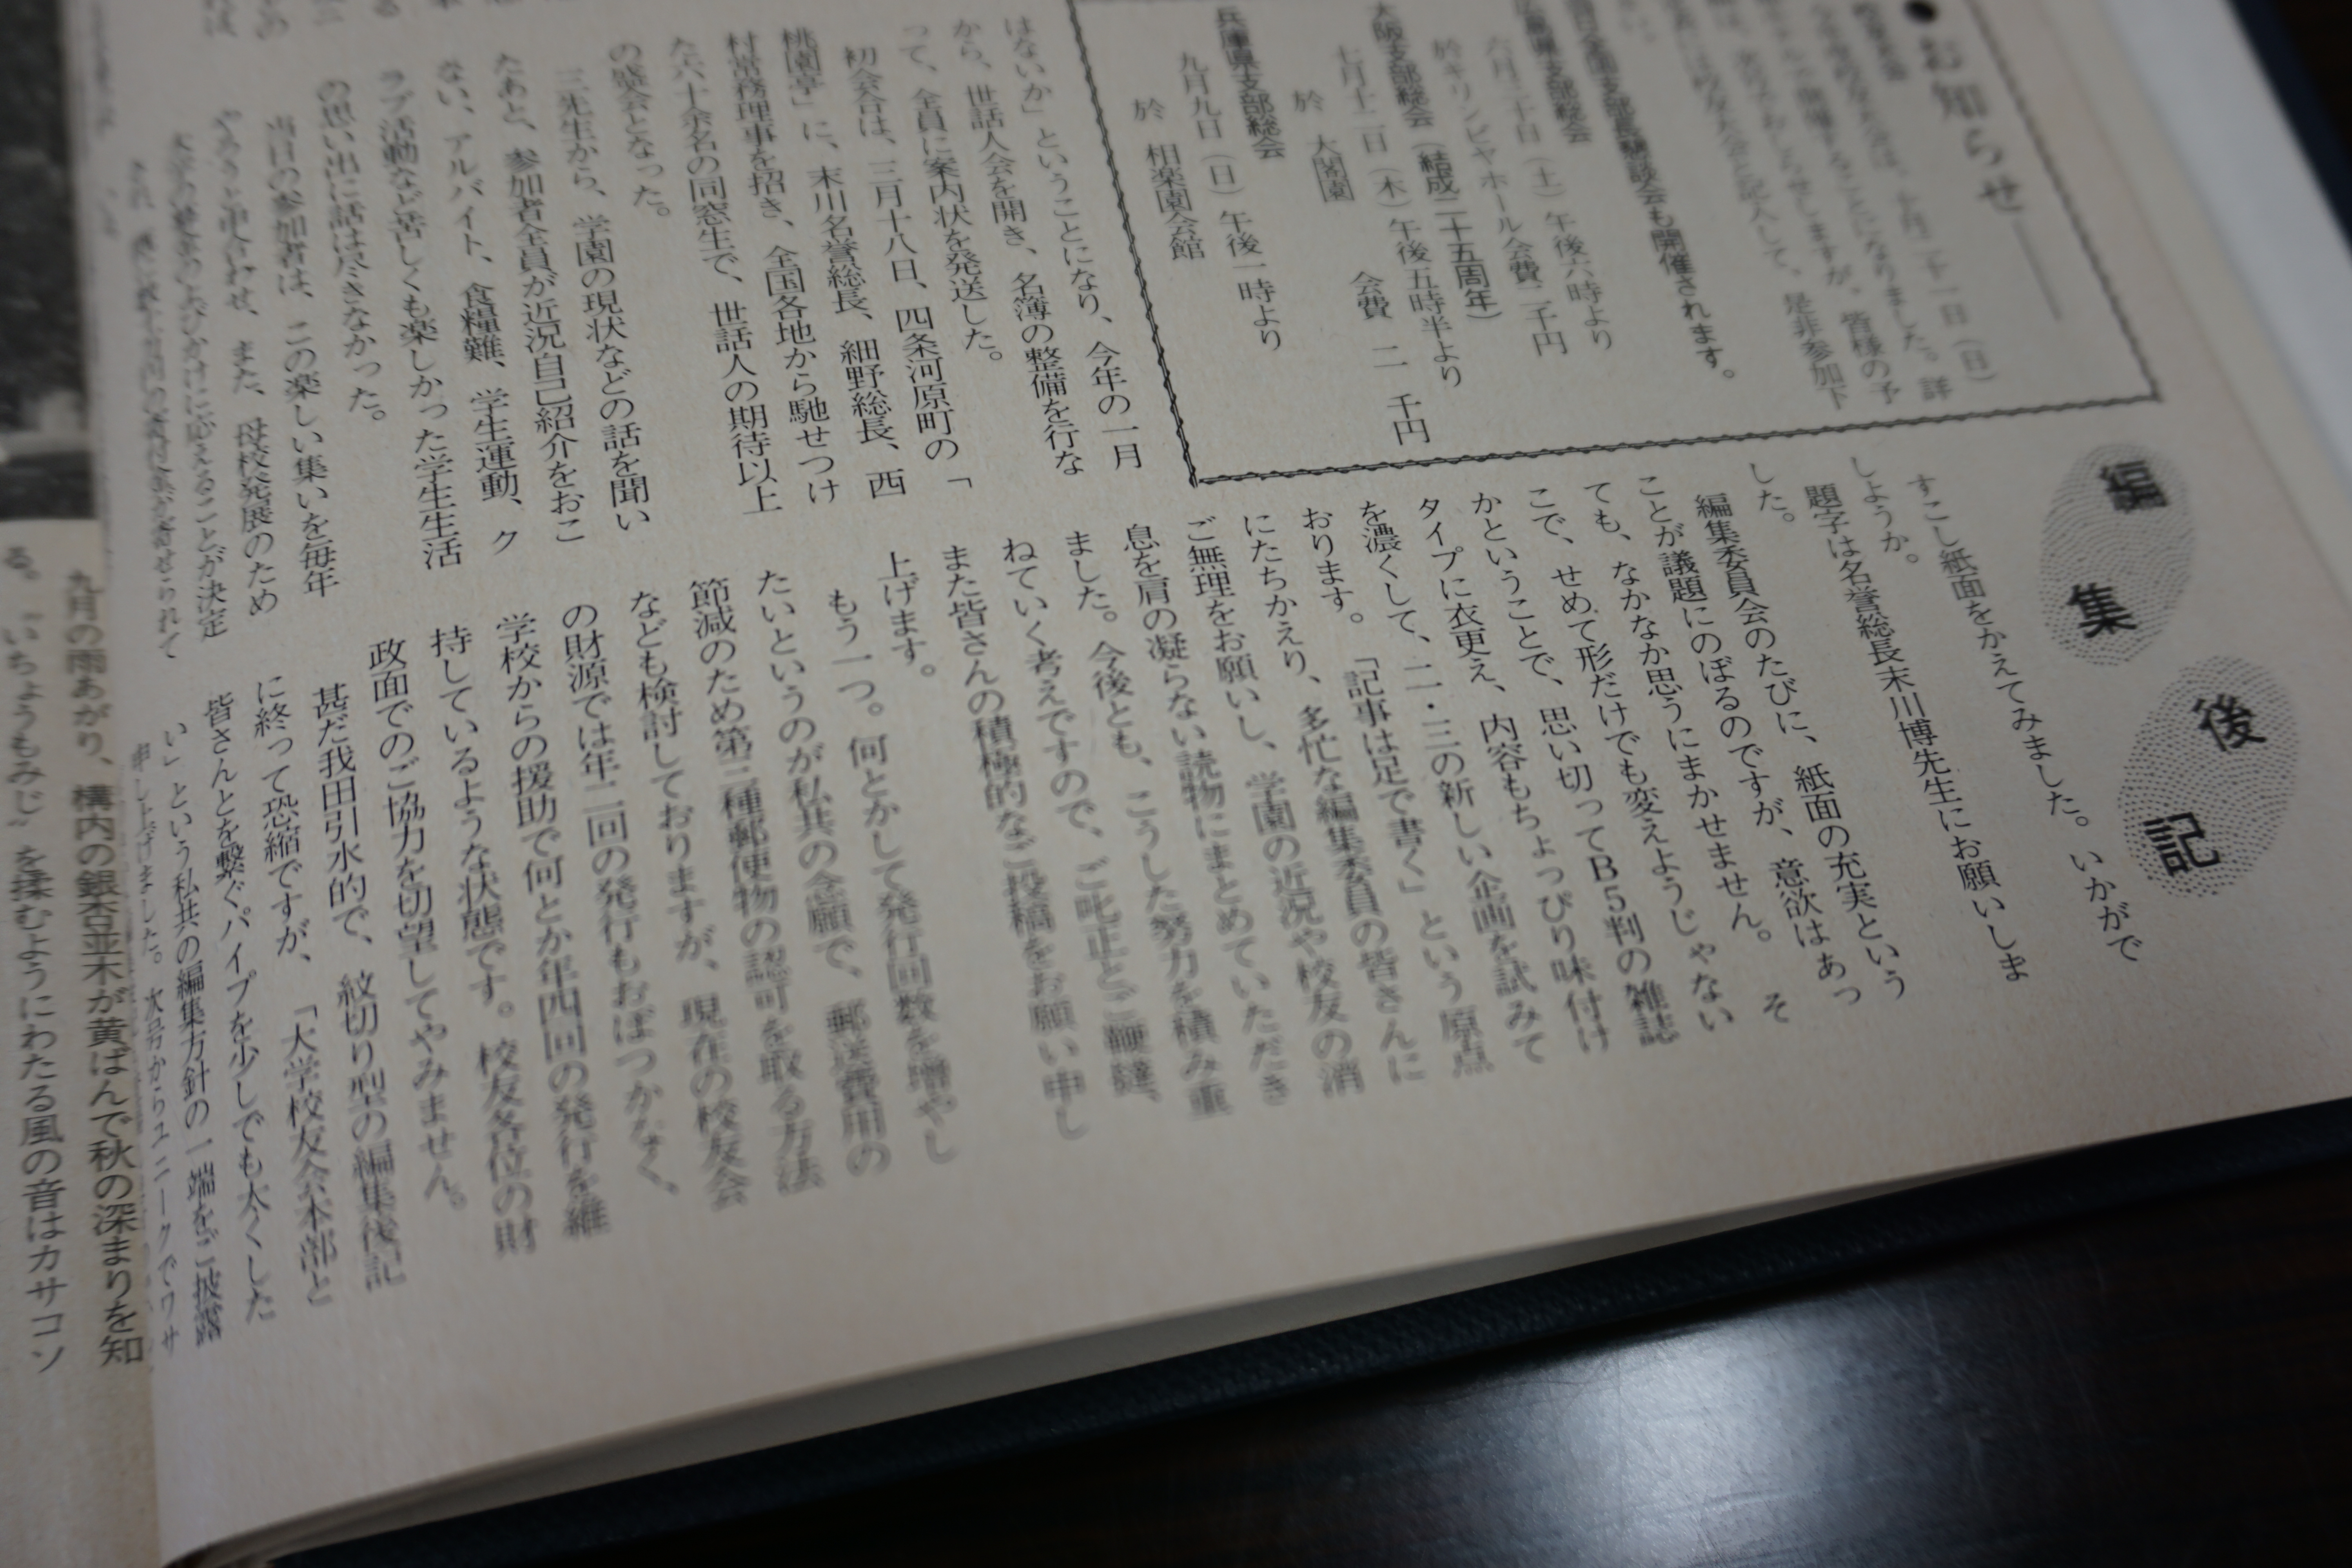 ●お知らせ
是非参加下
も開催されます。
六月三十日（土）午後六時より
於キリンビヤホール会費二千円
大阪支部総会（結成二十五周年）
七月十二日（木）午後五時半より
於　大閣園　会費　二　千円
兵庫県支部総会
九月九日（日）午後一時より
於　相楽園会館
はないか」ということになり、今年の一月
から、世話人会を開き、名簿の整備を行な
って、全員に案内状を発送した。
初会合は、三月十八日、四条河原町の「
桃園亭」に、末川名誉総長、細野総長、西
村常務理事を招き、全国各地から馳せつけ
た六十余名の同窓生で、世話人の期待以上
の盛会となった。
三先生から、学園の現状などの話を聞い
たあと、参加者全員が近況自己紹介をおこ
ない、アルバイト、食糧難、学生運動、ク
ラブ活動など苦しくも楽しかった学生生活
の思い出に話は尽きなかった。
当日の参加者は、この楽しい集いを毎年
やろうと申合わせ、また、母校発展のため
編集後記
すこし紙面をかえてみました。いかがで
しょうか。
題字は名誉総長末川博先生にお願いしま
した。
編集委員会のたびに、紙面の充実という
ことが議題にのぼるのですが、意欲はあっ
ても、なかなか思うにまかせません。　そ
こで、せめて形だけでも変えようじゃない
かということで、思い切ってB5判の雑誌
タイプに衣更え、内容もちょっぴり味付け
を濃くして、二・三の新しい企画を試みて
おります。　「記事は足で書く」という原点
にたちかえり、多忙な編集委員の皆さんに
ご無理をお願いし、学園の近況や校友の消
息を肩の凝らない読物にまとめていただき
ました。今後とも、こうした努力を積み重
ねていく考えですので、ご叱正とご鞭撻、
また皆さんの積極的なご投稿をお願い申し
上げます。
もう一つ。何とかして発行回数を増やし
たいというのが私共の念願で、郵送費用の
節減のため第三種郵便物の認可を取る方法
なども検討しておりますが、現在の校友会
の財源では年二回の発行もおぼつかなく、
学校からの援助で何とか年四回の発行を維
持しているような状態です。校友各位の財
政面でのご協力を切望してやみません。
甚だ我田引水的で、紋切り型の編集後記
に終って恐縮ですが、「大学校友会本部と
皆さんとを繋ぐパイプを少しでも太くした
い」という私共の編集方針の一端をご披露
申し上げました。次号からユニークでワサ
九月の雨あがり、構内の銀杏並木が黄ばんで秋の深まりを知
る。〝いちょうもみじ〟を揉むようにわたる風の音はカサコソ